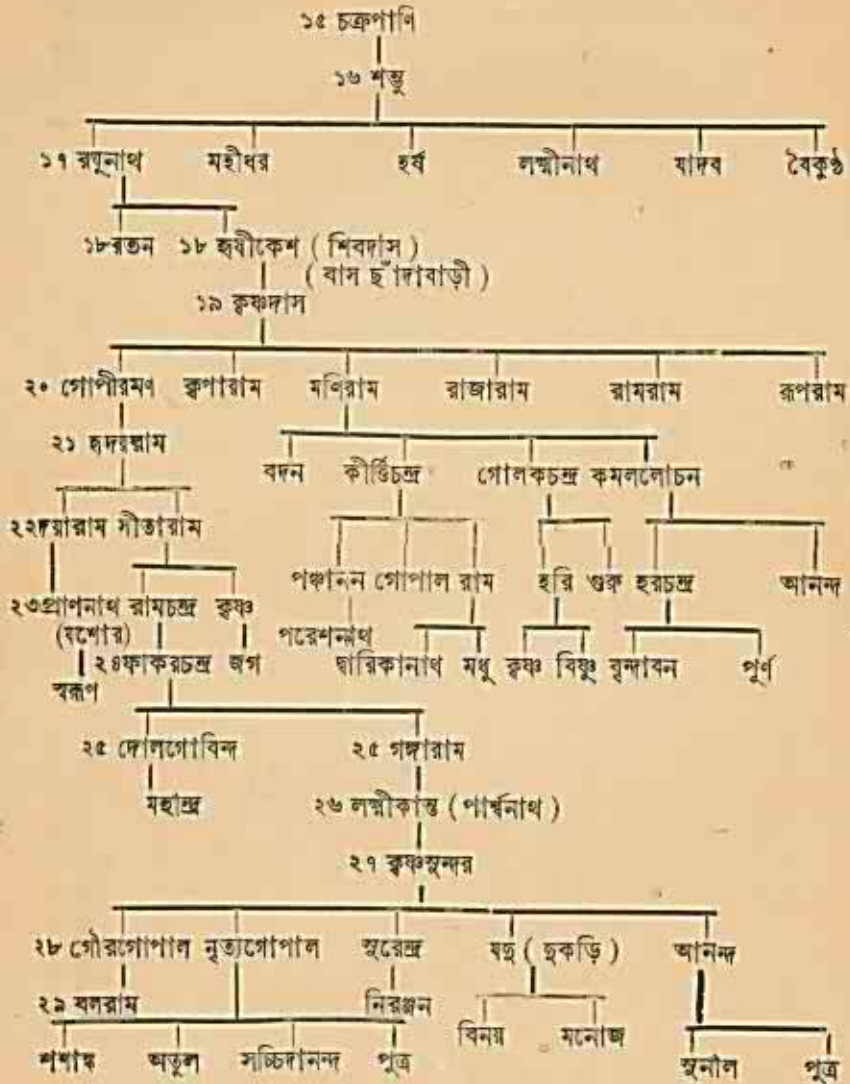 ১৫ চক্রপাণি
১৬ শম্ভু
১৭ রঘুনাথ মহীধর হর্ষ লক্ষ্মীনাথ যাদব বৈকুণ্ঠ
১৮ রতন ১৮ হৃষীকেশ ( শিবদাস )
( বাস ছাঁদাবাড়ী )
১৯ কৃষ্ণদাস
২০ গোপীরমণ কৃপারাম মণিরাম রাজারাম রামরাম রূপরাম
২১ হৃদয়রাম
বদন কীর্ত্তিচন্দ্র গোলকচন্দ্র কমললোচন
২২ দয়ারাম সীতারাম
পঞ্চানন গোপাল রাম হরি গুরু হরচন্দ্র আনন্দ
২৩ প্রাণনাথ রামচন্দ্র কৃষ্ণ
(যশোর) পরেশনাথ
২৪ ফকিরচন্দ্র জগ দ্বারিকানাথ মধু কৃষ্ণ বিষ্ণু বৃন্দাবন পূর্ণ
স্বরূপ
২৫ দোলগোবিন্দ ২৫ গঙ্গারাম
মহীন্দ্র ২৬ লক্ষ্মীকান্ত ( পার্শ্বনাথ )
২৭ কৃষ্ণসুন্দর
২৮ গৌরগোপাল নৃত্যগোপাল সুরেন্দ্র যদু ( দুকড়ি ) আনন্দ
২৯ বলরাম নিরঞ্জন
বিনয় মনোজ
শশাঙ্ক অতুল সচ্চিদানন্দ পুত্র সুনীল পুত্র